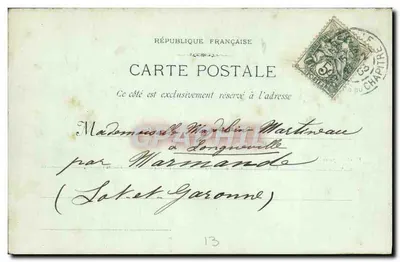 RÉPUBLIQUE FRANÇAISE
CARTE POSTALE
Ce côté est exclusivement réservé à l'adresse
Mademoiselle Martineau
à Longueville
par Marmande
(Lot-et-Garonne)
13